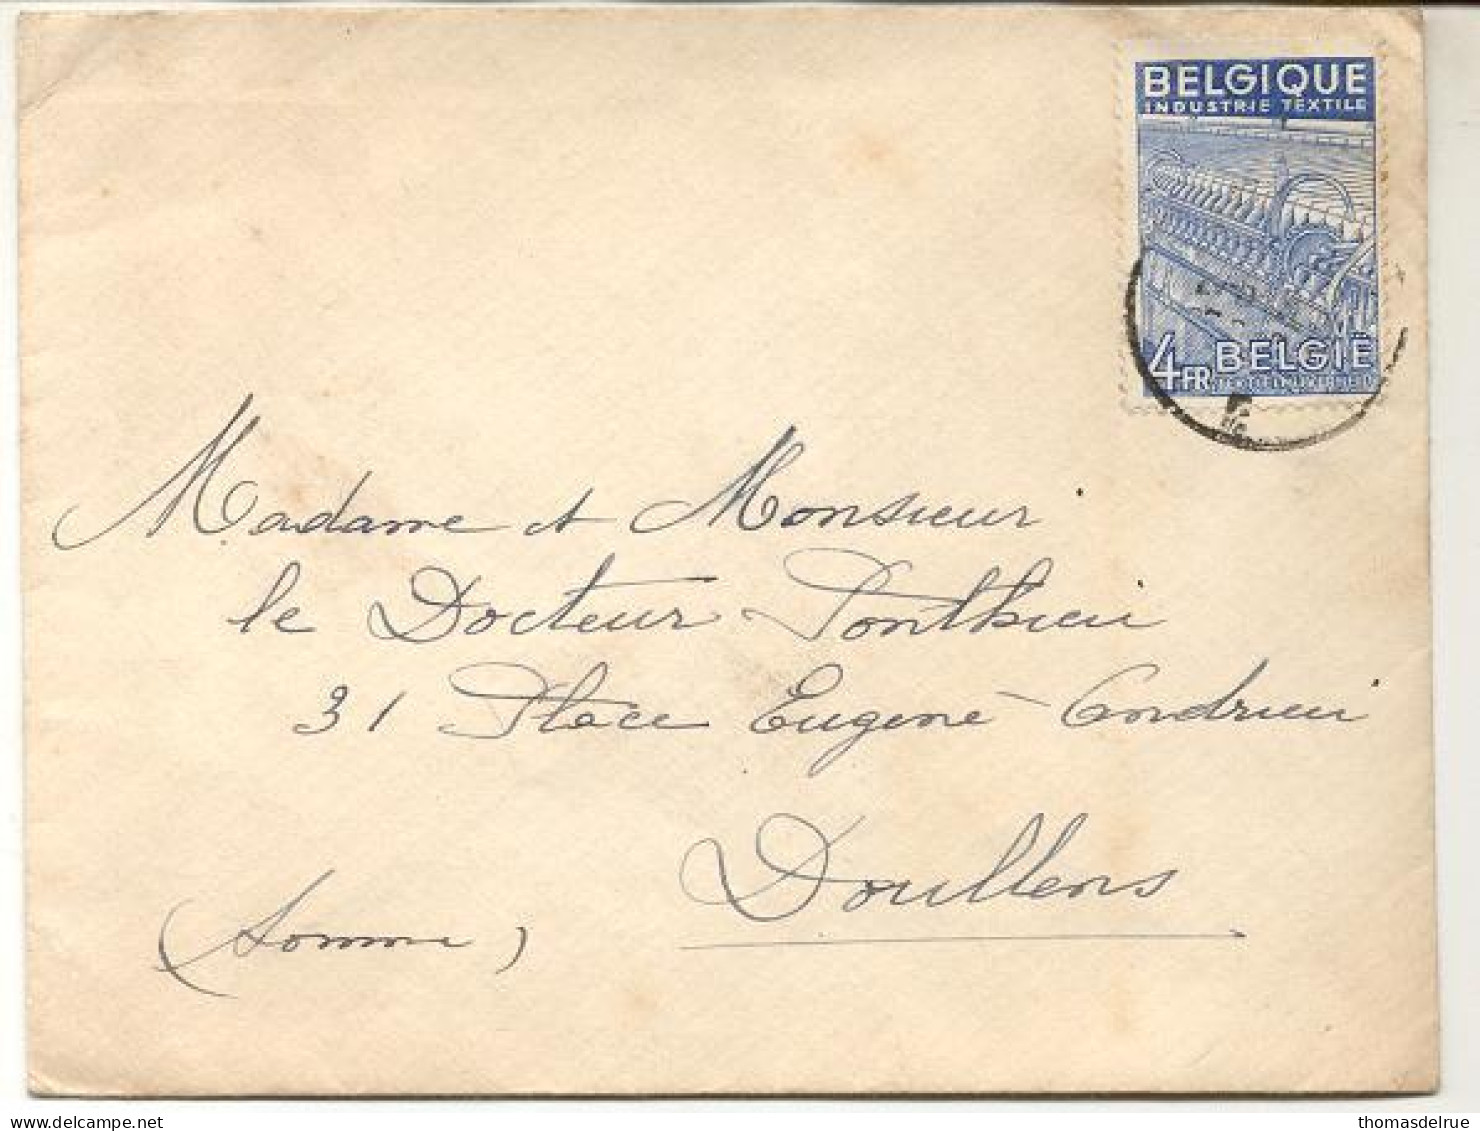 BELGIQUE
INDUSTRIE TEXTILE
4FR BELGIË
Madame et Monsieur
le Docteur Ponthieu
31 Place Eugène Andrieu
Doullens
(Somme)
thomasdelrue